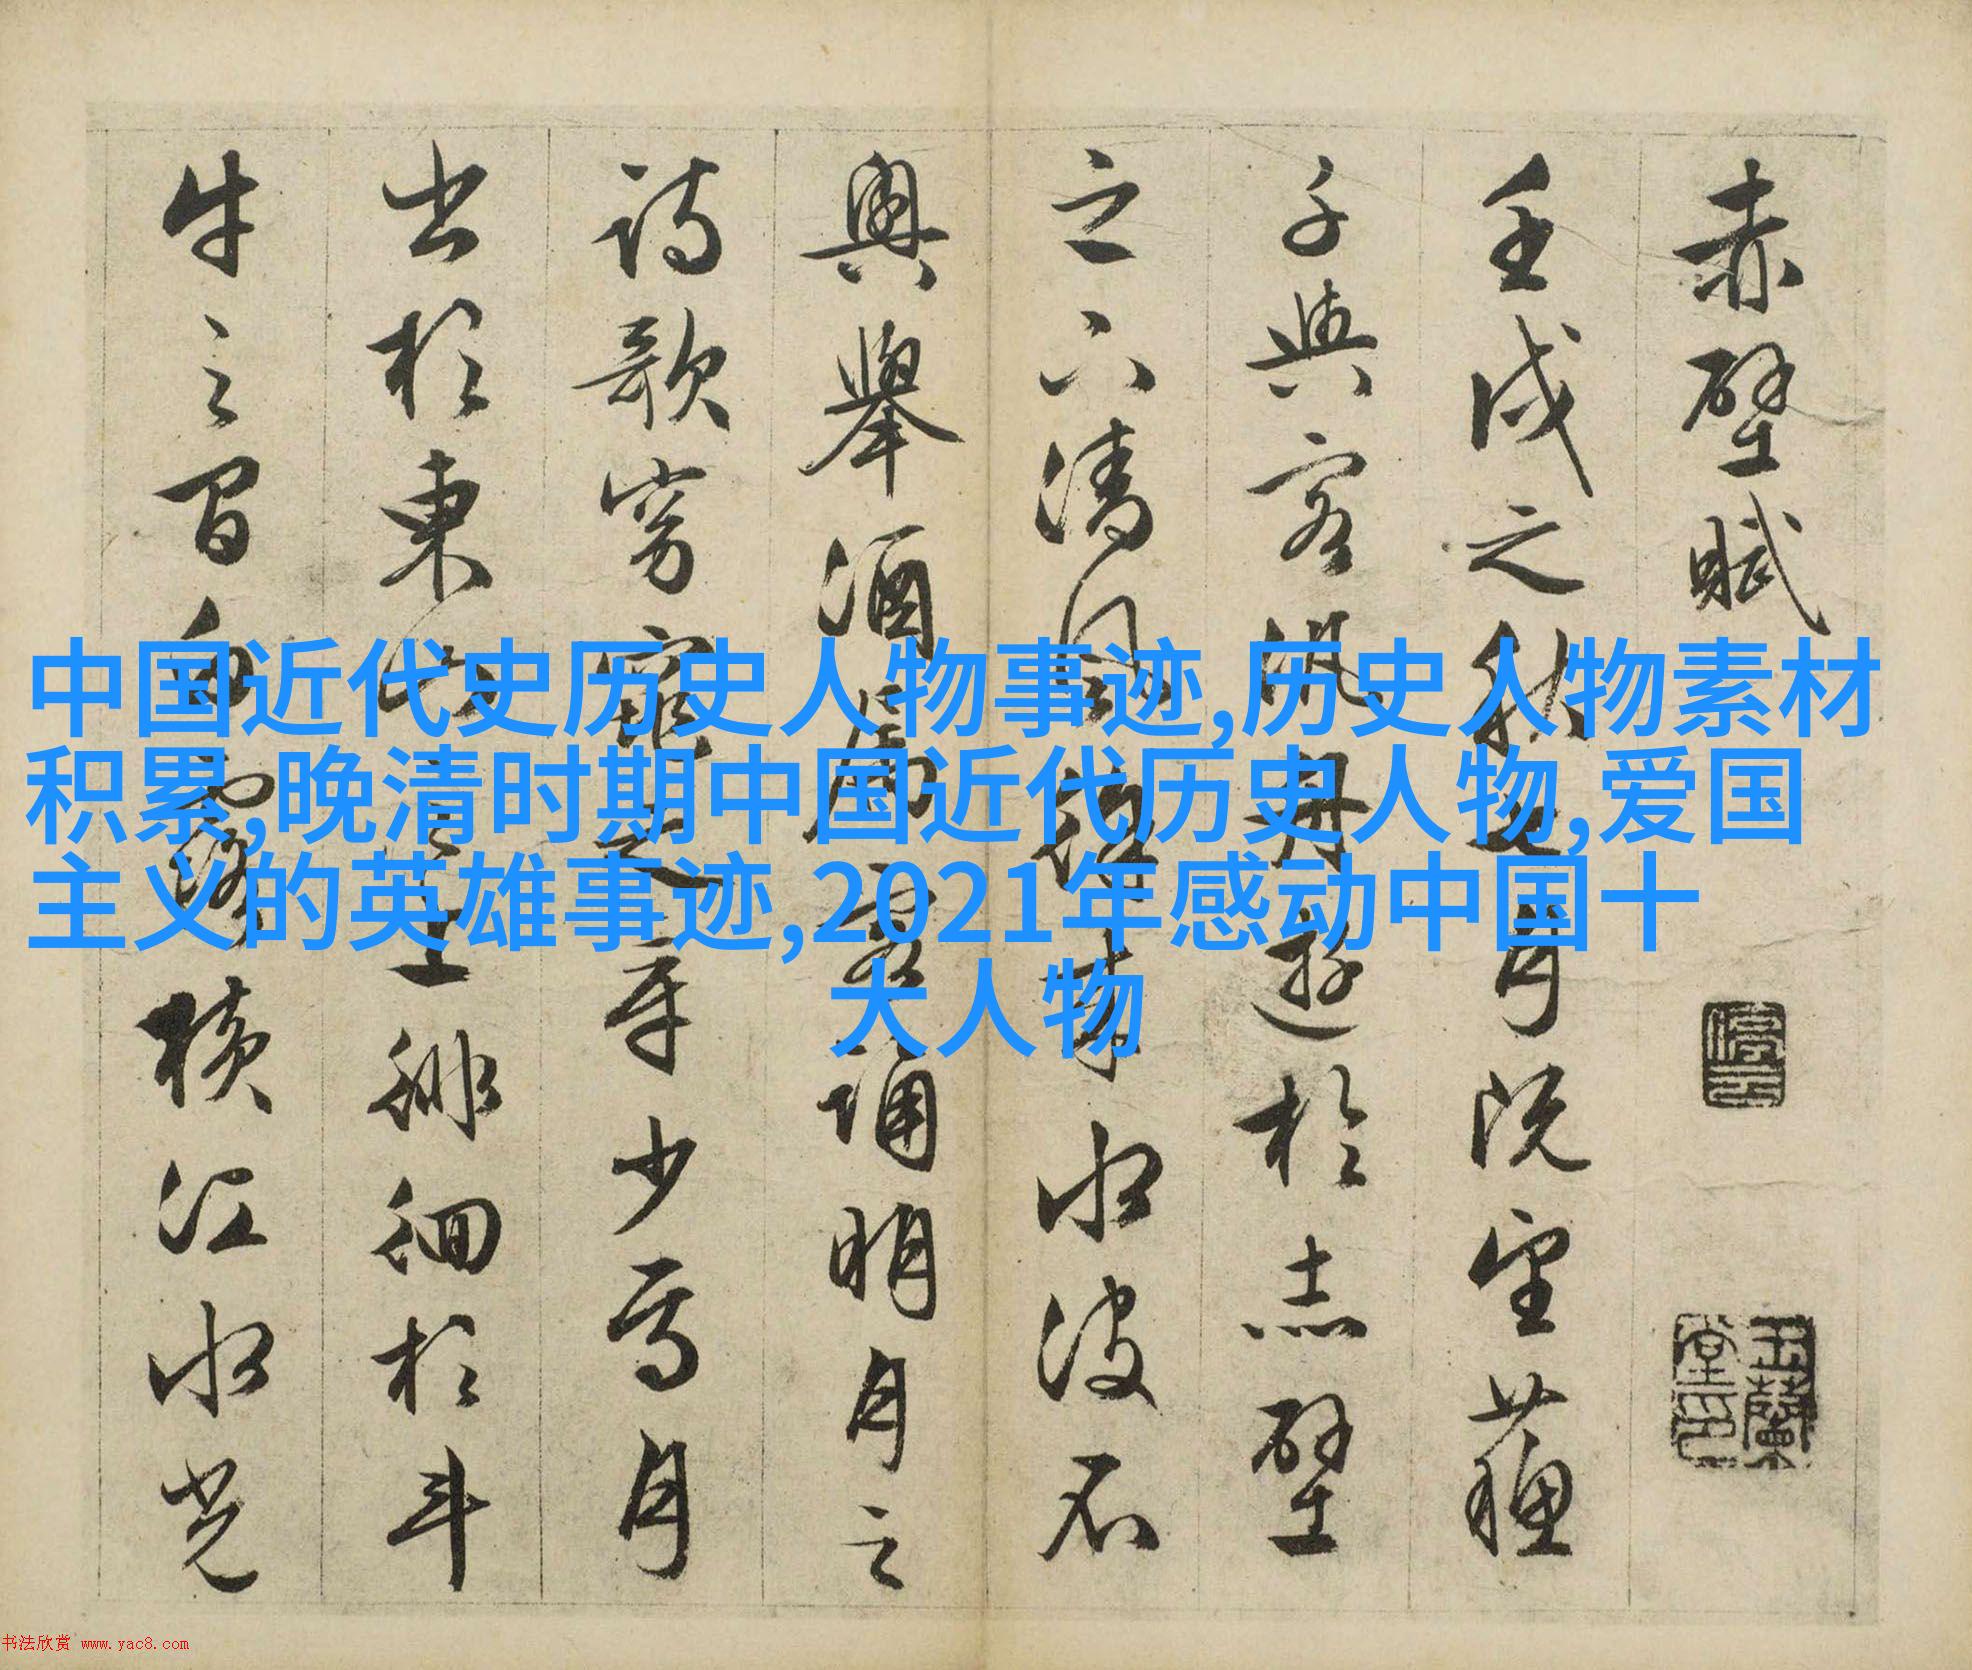 赤壁賦
壬戌之秋七月既望蘇
子與客汎舟遊於赤壁
之下清風徐来水波不
興舉酒屬客誦明月之
詩歌窈窕之章少焉月
出於東山之上徘徊於斗
牛之間白露橫江水光
停雲
玉蘭堂印
中国近代史历史人物事迹,历史人物素材
积累,晚清时期中国近代历史人物,爱国
主义的英雄事迹,2021年感动中国十
大人物
书法欣赏 www.yac8.com